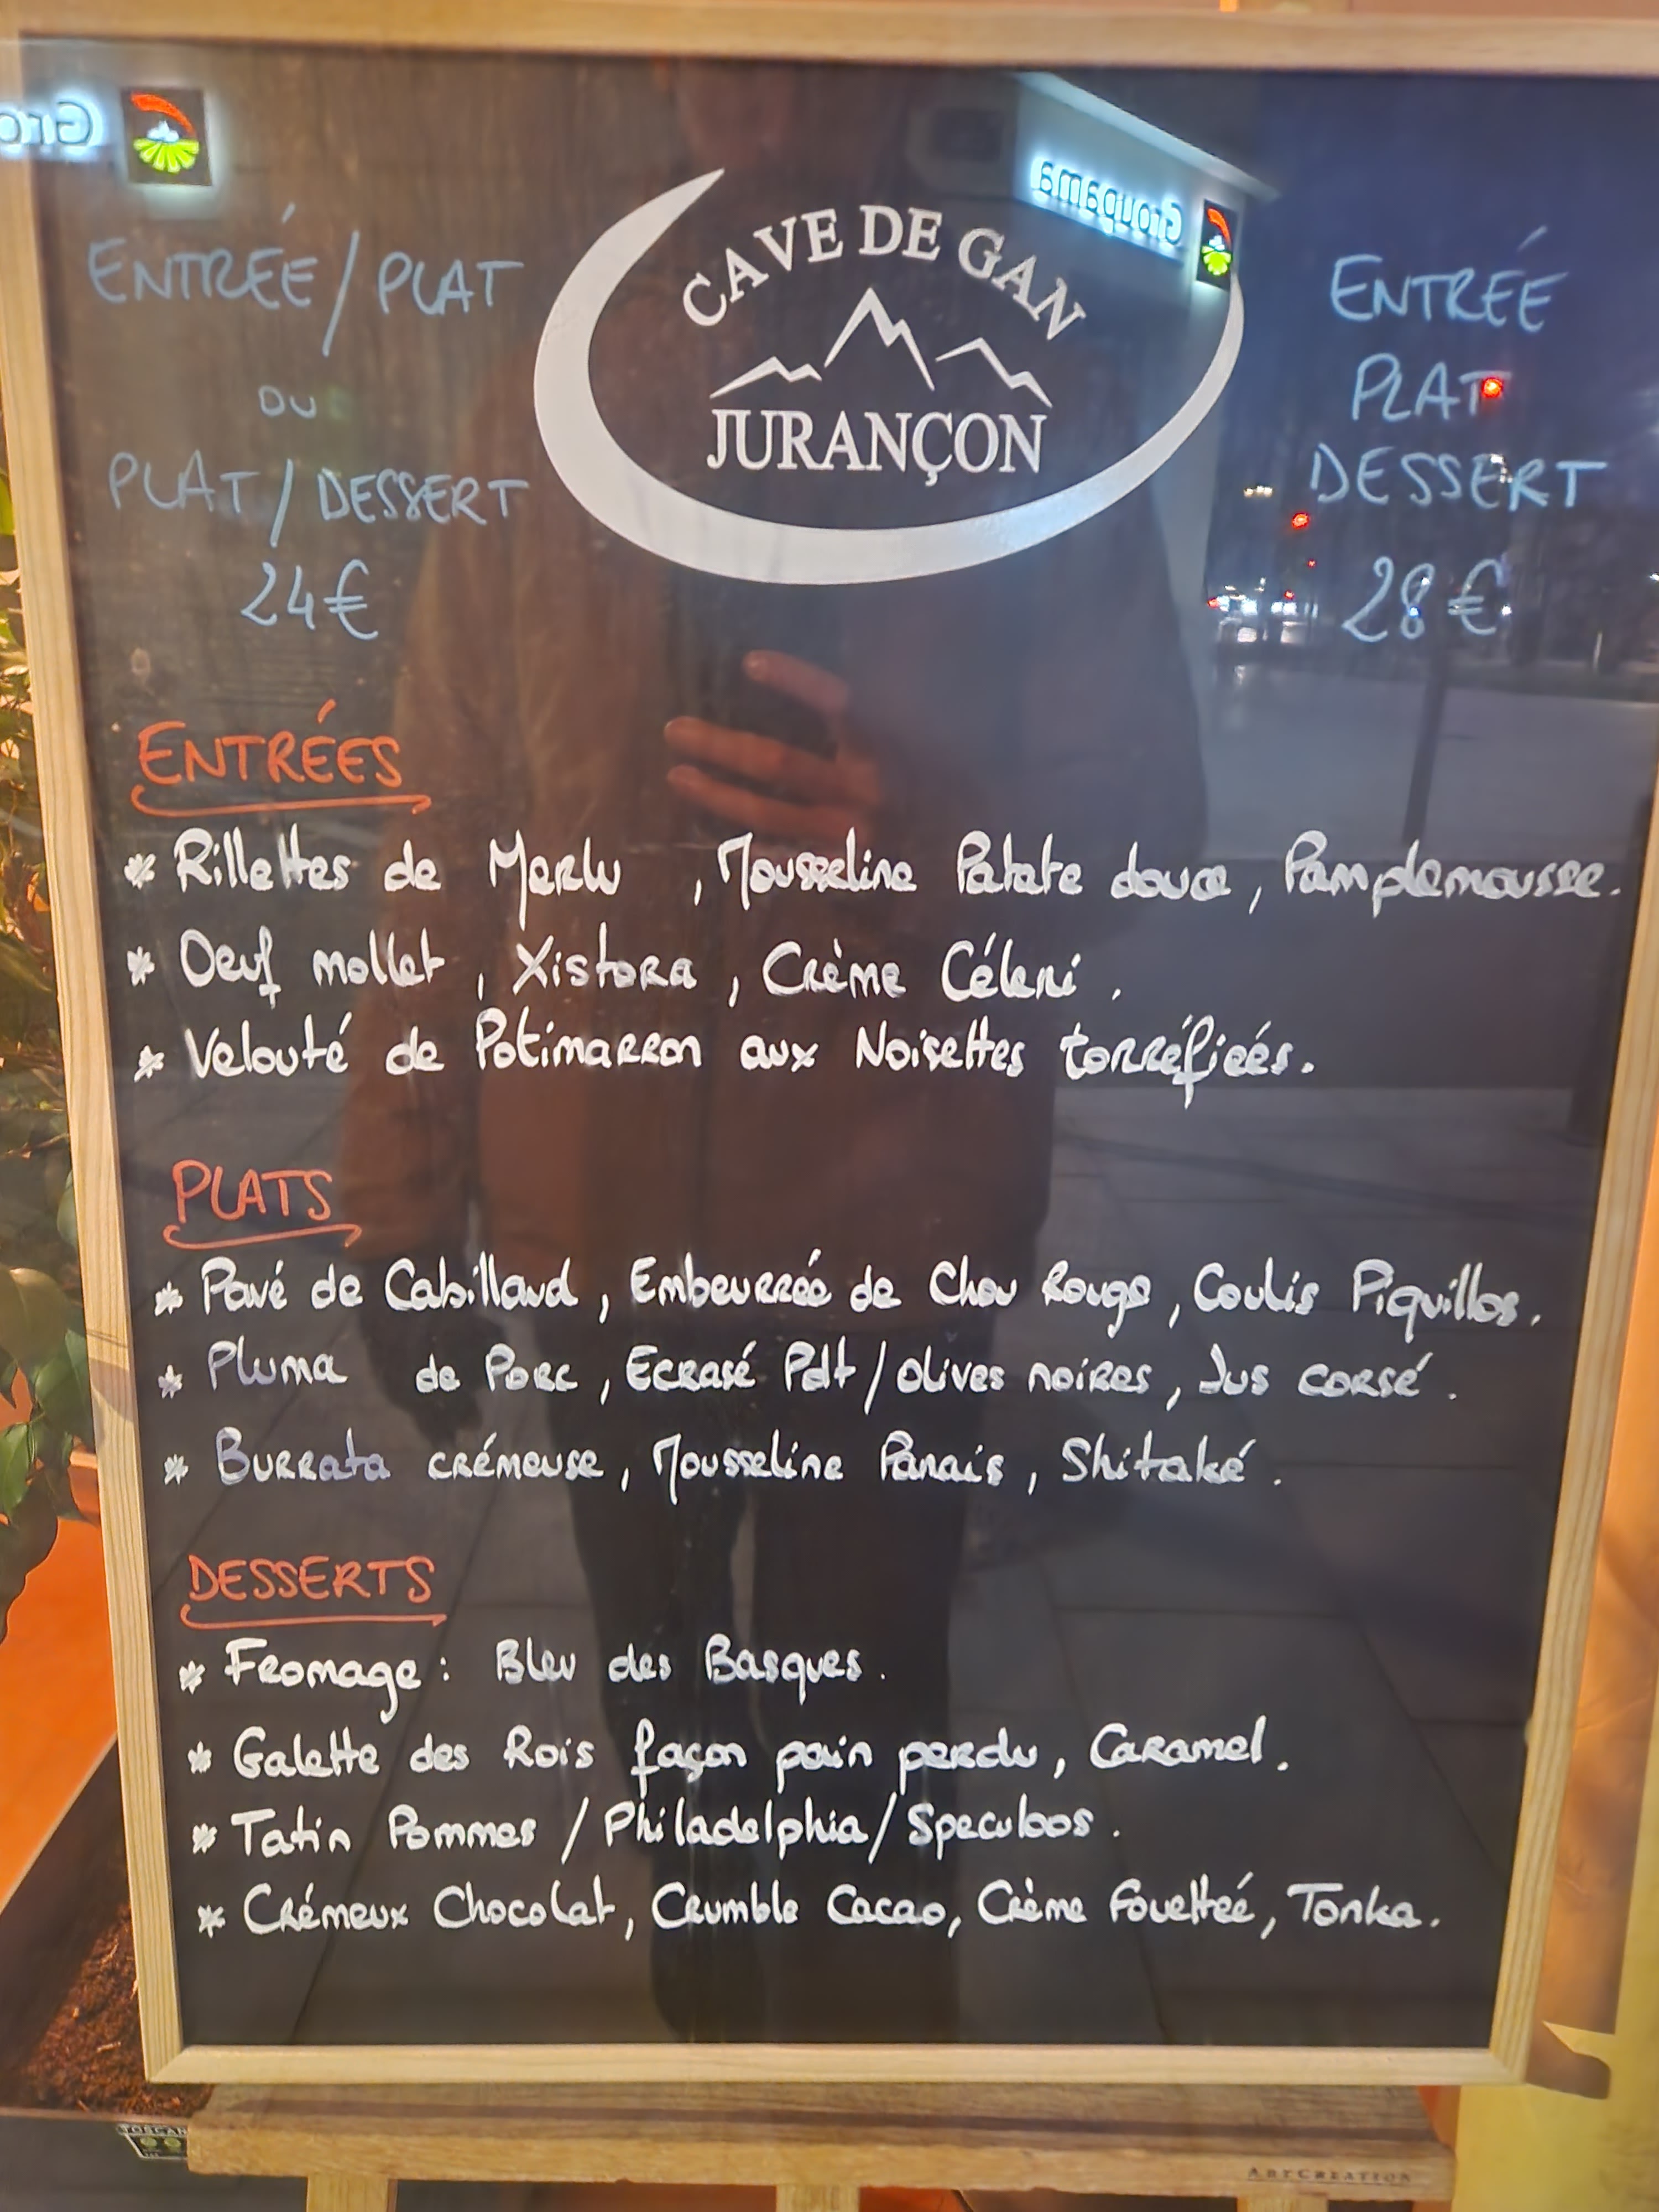 Groupama
CAVE DE GAN
JURANÇON
ENTRÉE / PLAT
OU
PLAT / DESSERT
24€
ENTRÉE
PLAT
DESSERT
28€
ENTRÉES
* Rillettes de Merlu , Mousseline Patate douce, Pamplemousse.
* Oeuf mollet , Xistora , Crème Céleri .
* Velouté de Potimarron aux Noisettes torréfiéés.
PLATS
* Pavé de Cabillaud , Embeurrée de Chou Rouge , Coulis Piquillos.
* Pluma de Porc , Ecrasé Pdt / olives noires , Jus corsé .
* Burrata crémeuse , Mousseline Panais , Shitaké .
DESSERTS
* Fromage : Bleu des Basques .
* Galette des Rois façon pain perdu , Caramel .
* Tatin Pommes / Philadelphia / Speculoos .
* Crémeux Chocolat , Crumble Cacao , Crème Fouetteé , Tonka .
ARTCREATION